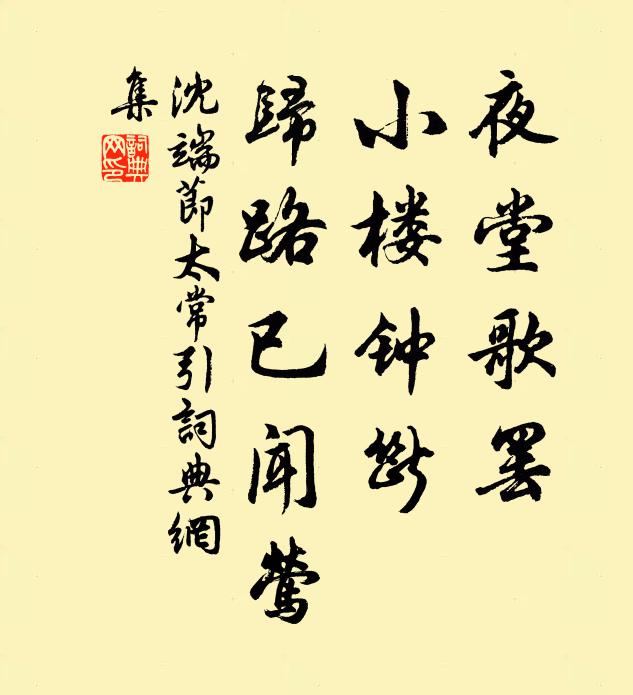 夜堂歌罢
小楼钟断
歸路已闻莺
沈端節太常引詞典網
集
詞典
网印